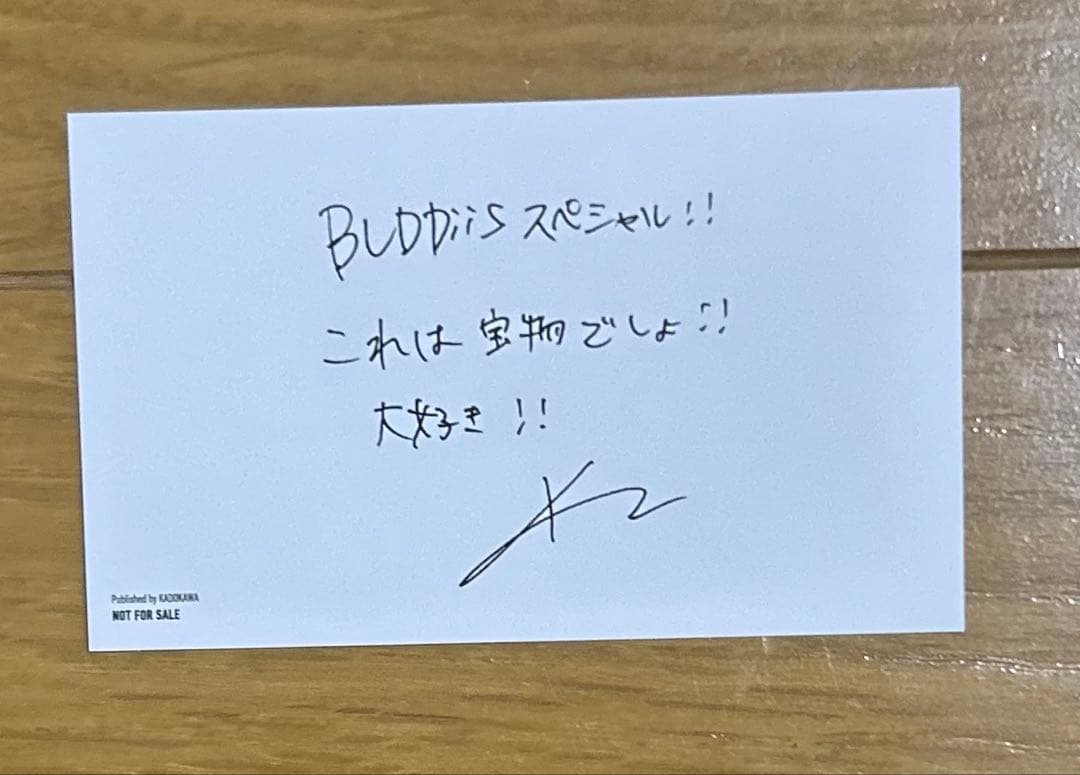 BUDDiiS スペシャル!!
これは宝物でしょ!!
大好き!!
Published by KADOKAWA
NOT FOR SALE